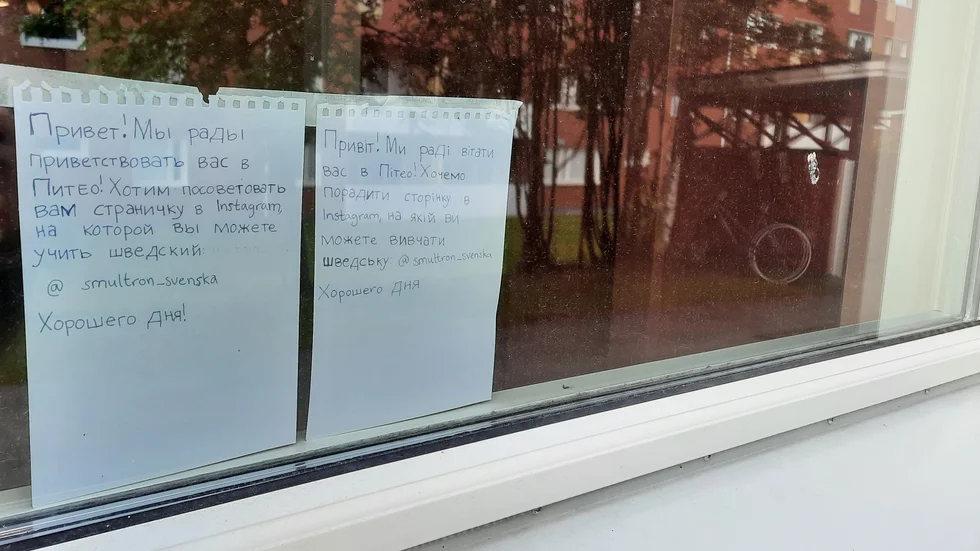 Привет! Мы рады
приветствовать вас в
Питео! Хотим посоветовать
вам страничку в Instagram,
на которой вы можете
учить шведский:
@ smultron_svenska
Хорошего дня!
Привіт! Ми раді вітати
вас в Пітео! Хочемо
порадити сторінку в
Instagram, на якій ви
можете вивчати
шведську: @smultron_svenska
Хорошего дня